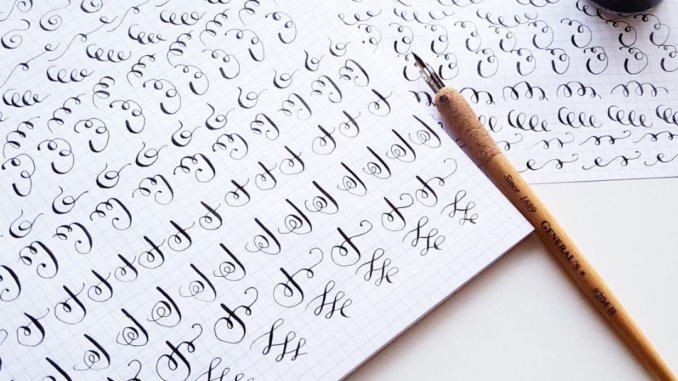 Since 1889 GENERAL'S ® #204 B